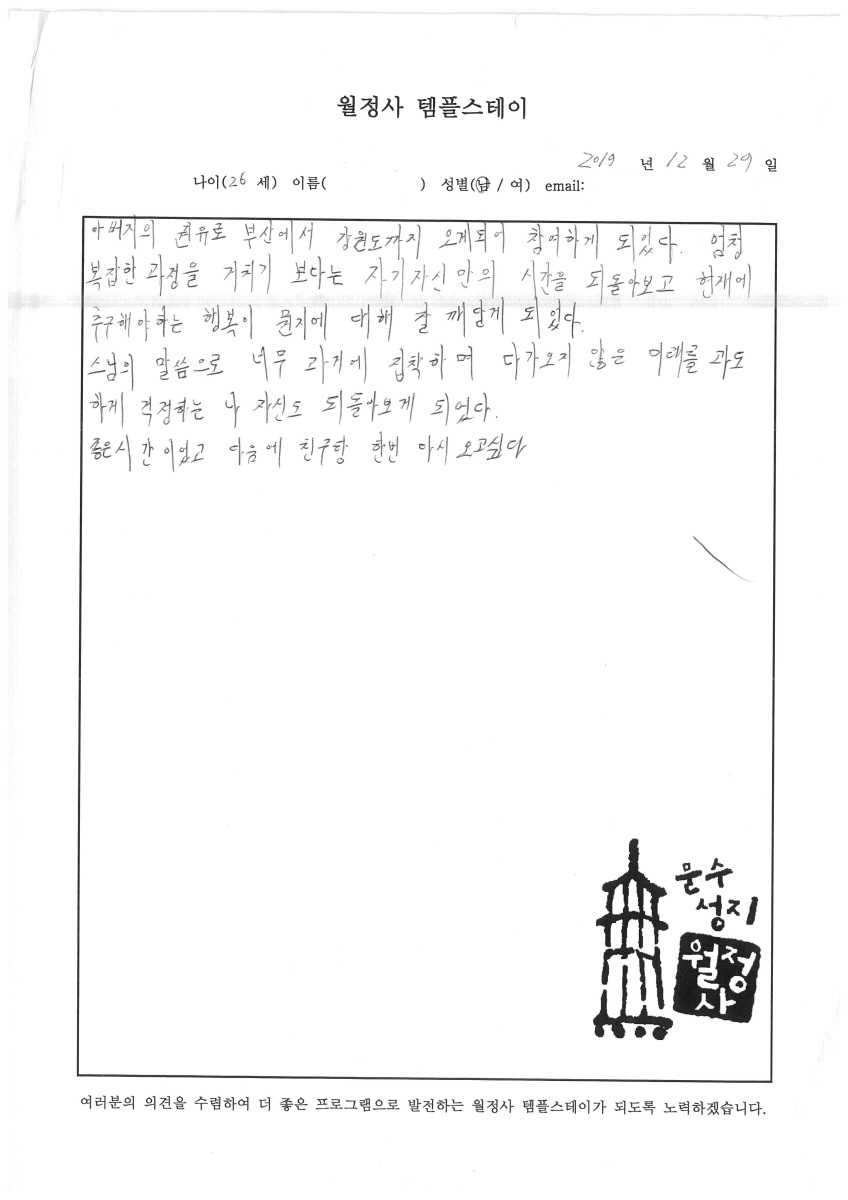 월정사 템플스테이
2019 년 12 월 29 일
나이(26 세) 이름( ) 성별(남 / 여) email:
아버지의 권유로 부산에서 강원도까지 오게되어 참여하게 되었다. 엄청
복잡한 과정을 거치기 보다는 자기자신만의 시간을 되돌아보고 현재에
추구해야하는 행복이 뭔지에 대해 잘 깨닫게 되었다.
스님의 말씀으로 너무 과거에 집착하며 다가오지 않은 미래를 과도
하게 걱정하는 나 자신도 되돌아보게 되었다.
좋은시간이었고 다음에 친구랑 한번 다시 오고싶다
문수
성지
월정
사
여러분의 의견을 수렴하여 더 좋은 프로그램으로 발전하는 월정사 템플스테이가 되도록 노력하겠습니다.